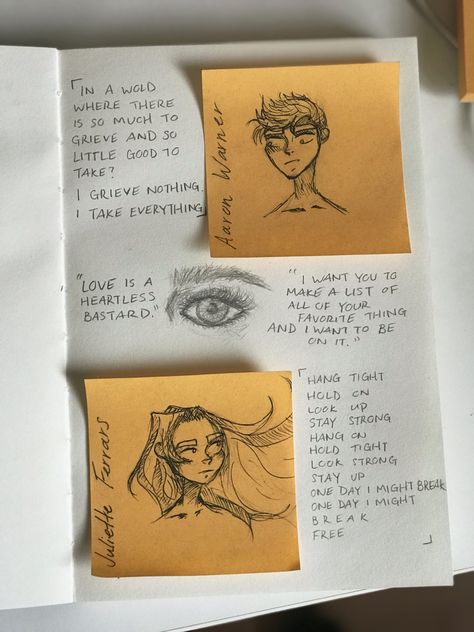 「IN A WOLD
WHERE THERE
IS SO MUCH TO
GRIEVE AND SO
LITTLE GOOD TO
TAKE?
I GRIEVE NOTHING.
I TAKE EVERYTHING」
Aaron Warner
"LOVE IS A
HEARTLESS
BASTARD."
"I WANT YOU TO
MAKE A LIST OF
ALL OF YOUR
FAVORITE THING
AND I WANT TO BE
ON IT."
Juliette Ferrars
「HANG TIGHT
HOLD ON
LOOK UP
STAY STRONG
HANG ON
HOLD TIGHT
LOOK STRONG
STAY UP
ONE DAY I MIGHT BREAK
ONE DAY I MIGHT
BREAK
FREE
」